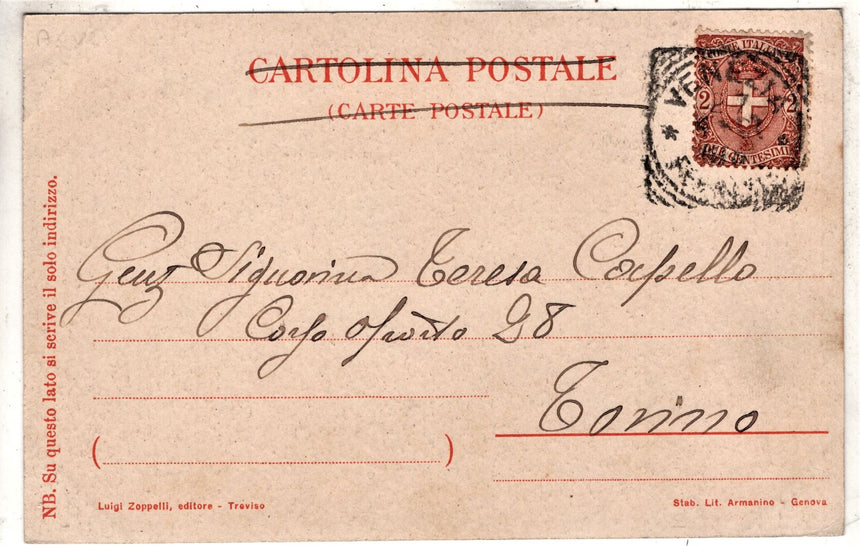 CARTOLINA POSTALE
(CARTE POSTALE)
POSTE ITALIANE
2 2
DUE CENTESIMI
VENEZIA
NB. Su questo lato si scrive il solo indirizzo.
Genz Signorina Teresa Capello
Corso Oporto 28
Torino
Luigi Zoppelli, editore - Treviso
Stab. Lit. Armanino - Genova